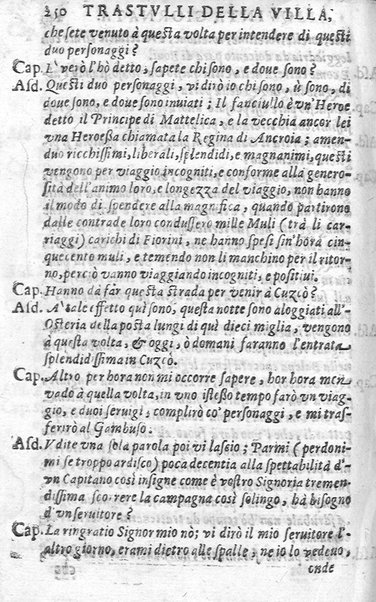 250 TRASTVLLI DELLA VILLA,
che sete venuto à questa volta per intendere di questi
duo personaggi?
Cap. E' verò l'hò detto, sapete chi sono, e doue sono?
Asd. Questi duo personaggi, vi dirò io chi sono, ù sono, di
doue sono, e doue sono inuiati; Il fanciullo è vn'Heroe
detto il Principe di Mattelica, e la vecchia ancor lei
vna Heroessa chiamata la Regina di Ancroia; amen-
duo ricchissimi, liberali, splendidi, e magnanimi, questi
vengono per viaggio incogniti, e conforme alla genero-
sità dell'animo loro, e longezza del viaggio, non hanno
il modo di spendere alla magnifica, quando partirono
dalle contrade loro condussero mille Muli (trà li car-
riaggi) carichi di Fiorini, ne hanno spesi sin'hora cin-
quecento muli, e temendo non li manchino per il ritor-
no, perciò vanno viaggiando incogniti, e positiui.
Cap. Hanno da fàr questa strada per venir à Cuzcò?
Asd. A' tale effetto quì sono, questa notte sono alogiati all'-
Osteria della posta lungi di quì dieci miglia, vengono
à questa volta, & oggi, ò domani faranno l'entrata
splendidissima in Cuzcò.
Cap. Altro per hora non mi occorre sapere, hor hora men
vado à quella volta, in vno istesso tempo farò vn viag-
gio, e duoi seruigi, complirò co' personaggi, e mi tras-
ferirò al Gambuso.
Asd. Vdite vna sola parola poi vi lascio; Parmi (perdoni-
mi se troppo ardisco) poca decentia alla spettabilità d'-
vn Capitano così insigne come è vostro Signoria tremen-
dissima scorrere la campagna così solingo, hà bisogno
d'vn seruitore?
Cap. La ringratio Signor mio nò; vi dirò il mio seruitore l'-
altro giorno, erami dietro alle spalle, ne io lo vedeuo,
onde